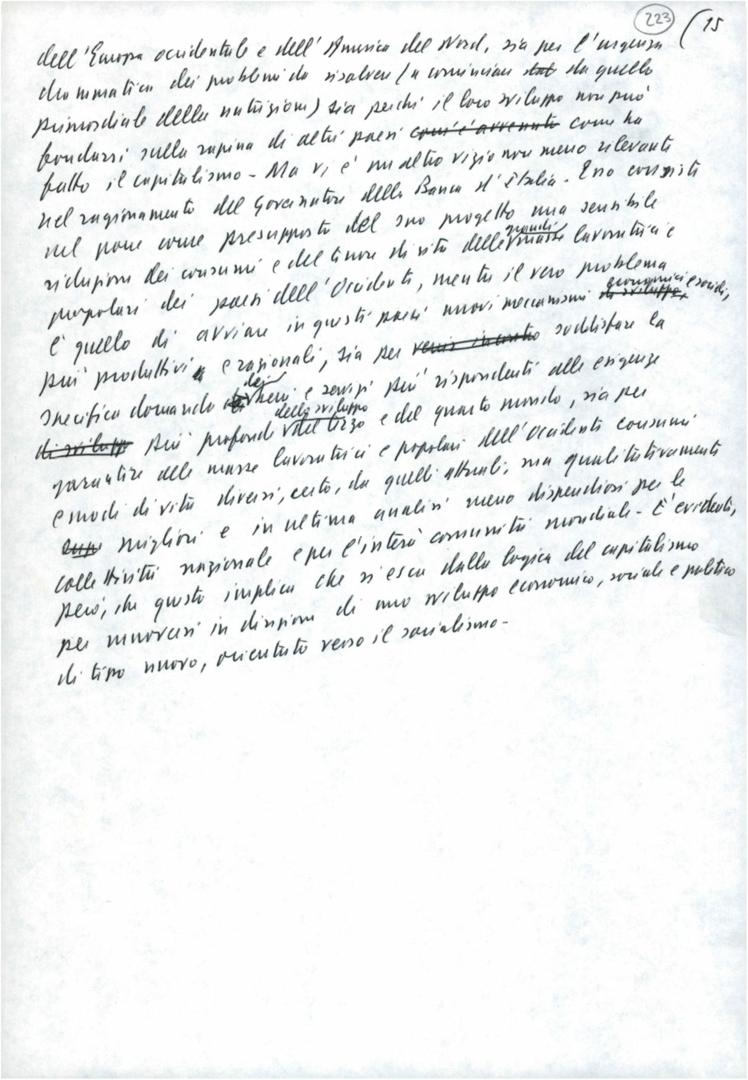 223 (15
dell'Europa occidentale e dell'America del Nord, sia per l'urgenza
drammatica dei problemi da risolvere (a cominciare da quello
primordiale della nutrizione) sia perché il loro sviluppo non può
fondarsi sulla rapina di altri paesi com'è avvenuto come ha
fatto il capitalismo - Ma vi è un altro vizio non meno rilevante
nel ragionamento del Governatore della Banca d'Italia. Esso consiste
nel porre come presupposto del suo progetto una sensibile
riduzione dei consumi e del tenore di vita delle grandi masse lavoratrici e
popolari dei paesi dell'Occidente, mentre il vero problema
è quello di avviare in questi paesi nuovi meccanismi di sviluppo, economici e sociali,
più produttivi e razionali, sia per venire incontro soddisfare la
specifica domanda dei beni e servizi più rispondenti alle esigenze
di sviluppo più profonde dello sviluppo del terzo e del quarto mondo, sia per
garantire alle masse lavoratrici e popolari dell'Occidente consumi
e modi di vita diversi, certo, da quelli attuali, ma qualitativamente
migliori e in ultima analisi meno dispendiosi per le
collettività nazionale e per l'intera comunità mondiale - È evidente,
però, che questo implica che si esca dalla logica del capitalismo
per muoversi in direzione di uno sviluppo economico, sociale e politico
di tipo nuovo, orientato verso il socialismo -